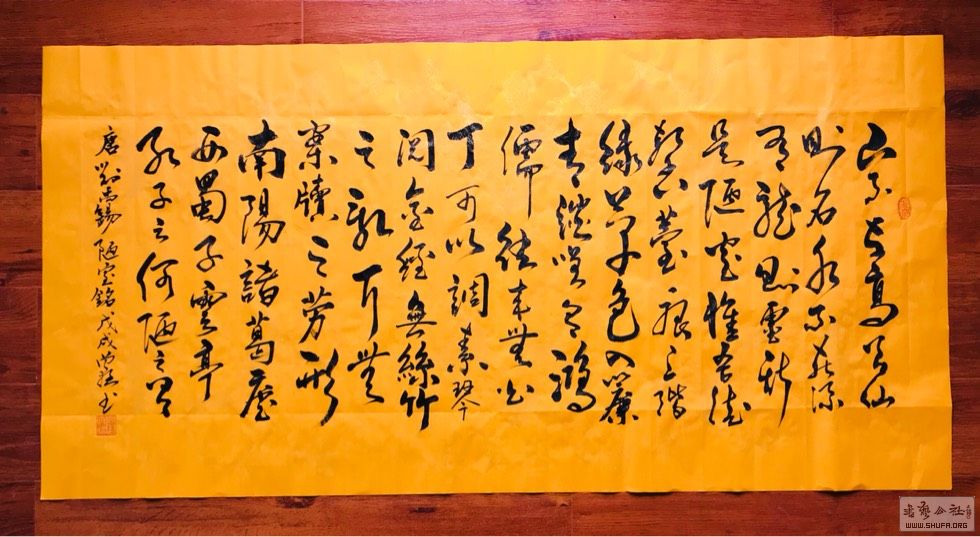 山不在高有仙
則名水不在深
有龍則靈斯
是陋室惟吾德
馨苔痕上階
緑草色入簾
青談笑有鴻
儒往来無白
丁可以調素琴
閲金經無絲竹
之亂耳無
案牘之劳形
南陽諸葛廬
西蜀子雲亭
孔子云何陋之有
唐劉禹錫陋室銘戊戌書
書藝公社
WWW.SHUFA.ORG